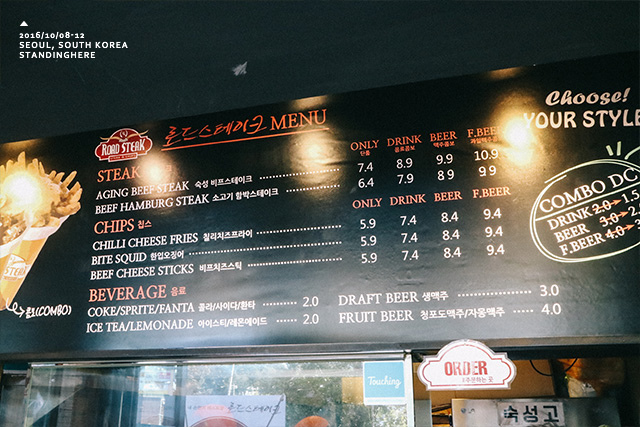 2016/10/08-12
SEOUL, SOUTH KOREA
STANDINGHERE
ROAD STEAK
로드스테이크 MENU
Choose!
YOUR STYLE
ONLY DRINK BEER F.BEER
단품 음료콤보 맥주콤보 과일맥주콤보
STEAK
AGING BEEF STEAK 숙성 비프스테이크 7.4 8.9 9.9 10.9
BEEF HAMBURG STEAK 소고기 함박스테이크 6.4 7.9 8.9 9.9
ONLY DRINK BEER F.BEER
CHIPS 칩스
CHILLI CHEESE FRIES 칠리치즈프라이 5.9 7.4 8.4 9.4
BITE SQUID 한입오징어 5.9 7.4 8.4 9.4
BEEF CHEESE STICKS 비프치즈스틱 5.9 7.4 8.4 9.4
COMBO DC
DRINK 2.0 → 1.5
BEER 3.0 → 2.
F.BEER 4.0 → 3.
BEVERAGE 음료
COKE/SPRITE/FANTA 콜라/사이다/환타 2.0
ICE TEA/LEMONADE 아이스티/레몬에이드 2.0
DRAFT BEER 생맥주 3.0
FRUIT BEER 청포도맥주/자몽맥주 4.0
STEAK
콤보(COMBO)
Touching
ORDER
주문하는 곳
로드스테이크
숙성고